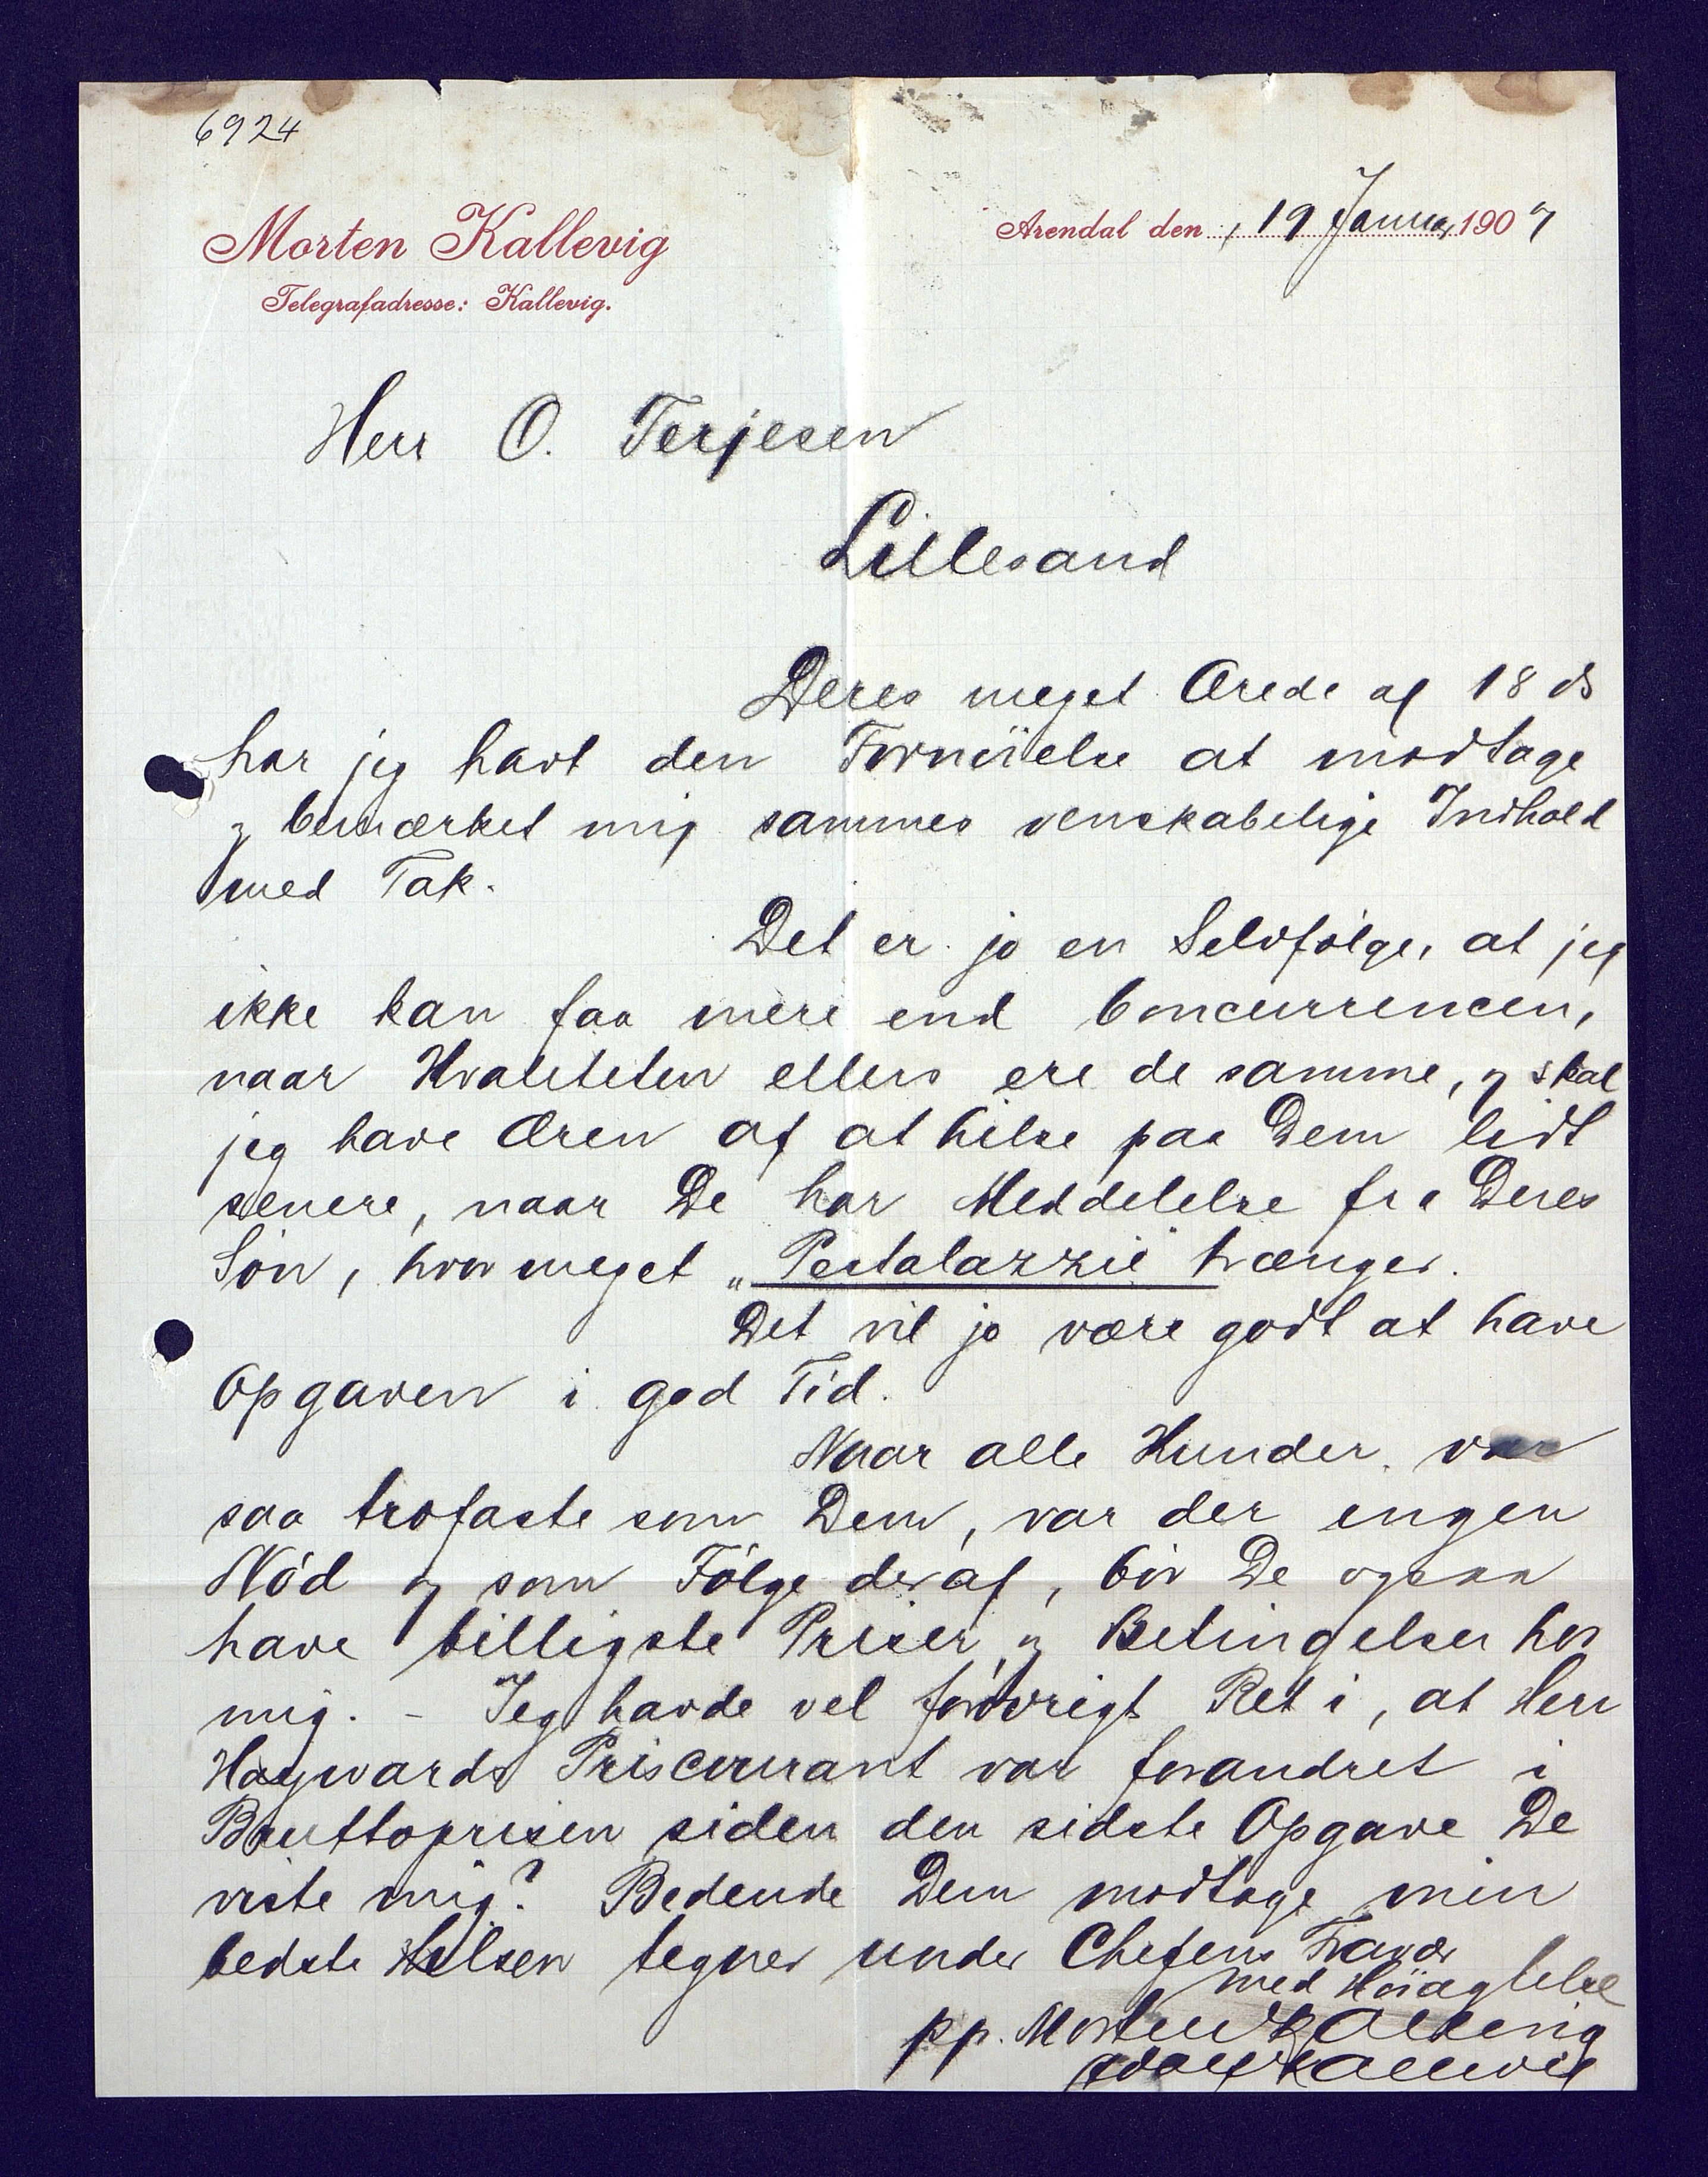 6924
Morten Kallevig
Telegrafadresse: Kallevig.
Arendal den 19 Januar 1907
Herr O. Terjesen
Lillesand
Deres meget Ærede af 18 ds
har jeg havt den Fornöielse at modtage
og bemærket mig sammes venskabelige Indhold
med Tak.
Det er jo en Selvfölge, at jeg
ikke kan faa mere end Concurrencen,
naar Kvaliteten ellers ere de samme, og skal
jeg have Æren af at hilse paa Dem lidt
senere, naar De har Meddelelse fra Deres
Sön, hvor meget „Pestalazzie" trænger.
Det vil jo være godt at have
Opgaven i god Tid.
Naar alle Kunder var
saa trofaste som Dem, var der ingen
Nöd og som Fölge deraf, bör De ogsaa
have billigste Priser og Betingelser hos
mig. - Jeg havde vel forövrigt Ret i, at Herr
Haywards Priscourant var forandret i
Bruttoprisen siden den sidste Opgave De
viste mig? Bedende Dem modtage min
bedste Hilsen tegner under Chefens Fravær
med Höiagtelse
pp. Morten Kallevig
Kallevig